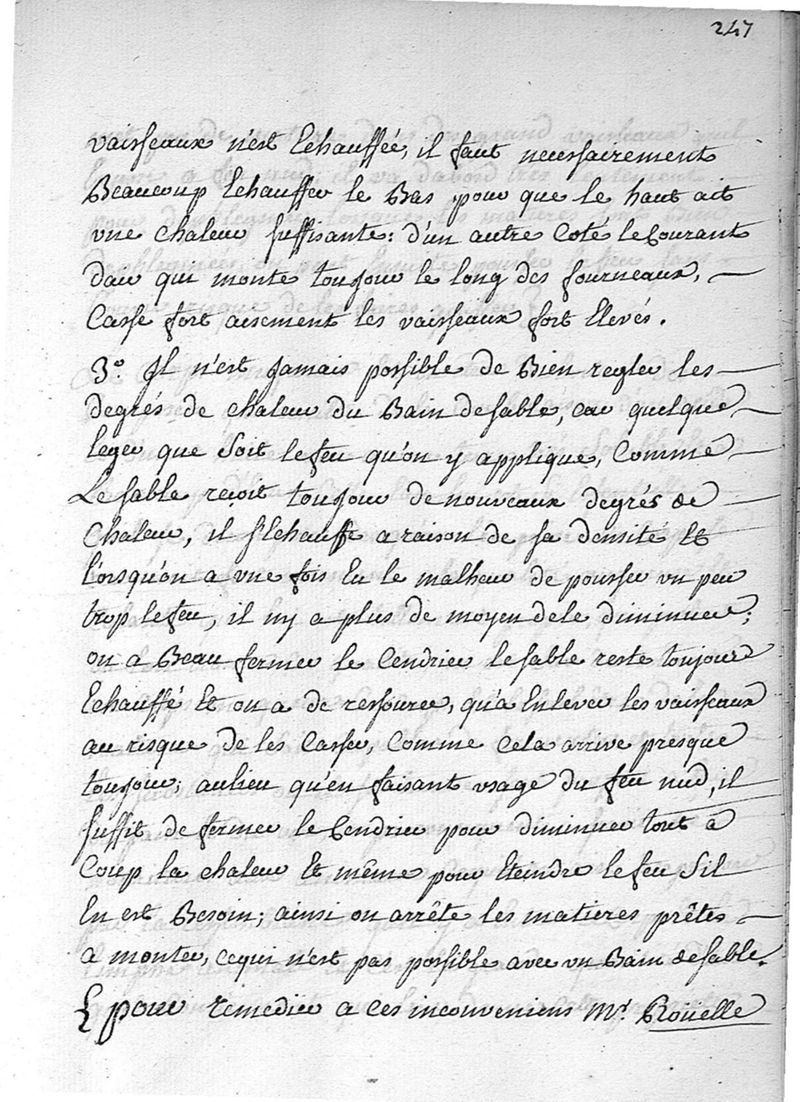 247
vaisseaux n'est Echauffée, il faut necessairement
Beaucoup Echauffer le Bas pour que le haut ait
vne chaleur suffisante: d'un autre Coté le Courant
dair qui monte toujour le long des fourneaux,
Casse fort aisement les vaisseaux fort Elevés.
3.° Il n'est Jamais possible de Bien regler les
degrés de chaleur du Bain de sable, car quelque
leger que Soit le feu qu'on y applique, Comme
Le sable reçoit toujour de nouveaux degrés de
Chaleur, il s'Echauffe a raison de sa densité Et
l'orsqu'on a vne fois Eu le malheur de pousser vn peu
trop le feu, il ny a plus de moyen de le diminuer;
on a Beau fermer le Cendrier le sable reste toujour
Echauffé Et on a de ressource, qu'a Enlever les vaisseaux
au risque de les Casser, Comme Cela arrive presque
toujour; aulieu qu'en faisant vsage du feu nud, il
suffit de fermer le Cendrier pour diminuer tout a
Coup la chaleur Et même pour Eteindre le feu Sil
En est Besoin; ainsi on arrête les matieres prêtes
a monter, cequi n'est pas possible avec vn Bain de sable.
& pour remedier a ces inconveniens Mr. Roüelle